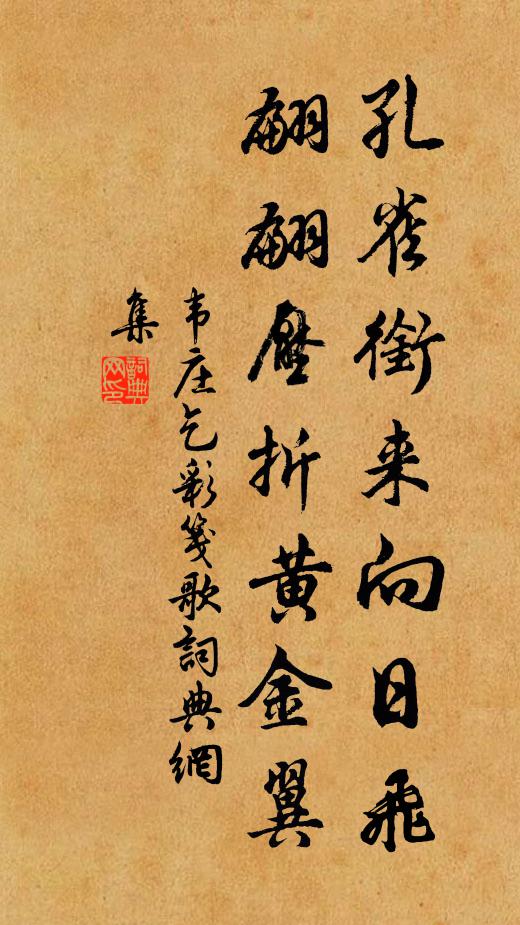 孔雀銜来向日飛
翩翩壓折黄金翼
韦庄乞彩箋歌詞典網
集
詞典網印